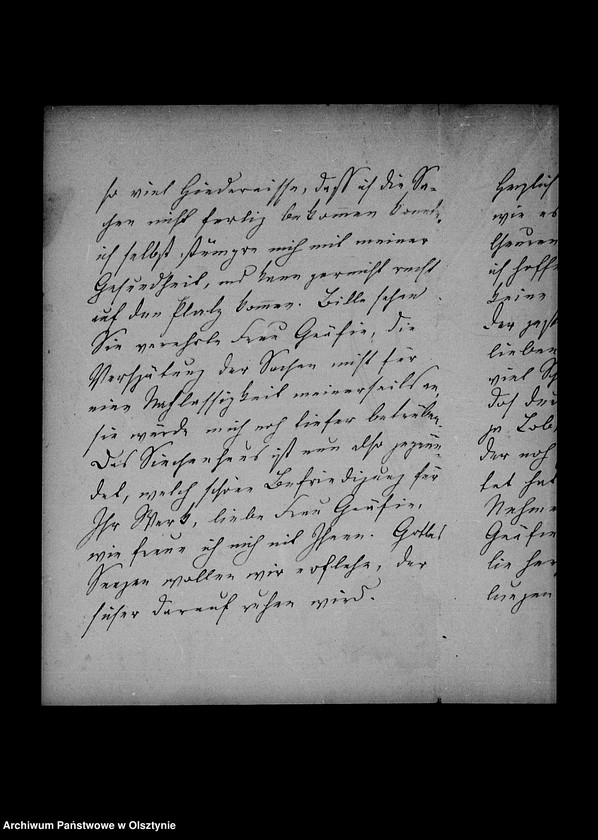 so viel Hindernisse, dass ich die Sa-
chen nicht fertig bekommen konnte,
ich selbst stümpre mich mit meiner
Gesundheit, und kann garnicht recht
auf den Platz kommen. Bitte sehen
Sie verehrte Frau Gräfin, die
Verspätung der Sachen nicht für
eine Nachlässigkeit meinerseits an,
sie würde mich noch tiefer betrüben.
Das Siechenhaus ist nun also gegrün-
det, welch schöne Befriedigung für
Ihr Werk, liebe Frau Gräfin,
wie freue ich mich mit Ihnen. Gottes
Seegen wollen wir erflehn, der
sicher darauf ruhen wird.
Herzlich
wie es
ich hoffe
keine
der
lieben
viel
das
zu
der noch
tet hat
Nehme
Gräfin
Archiwum Państwowe w Olsztynie